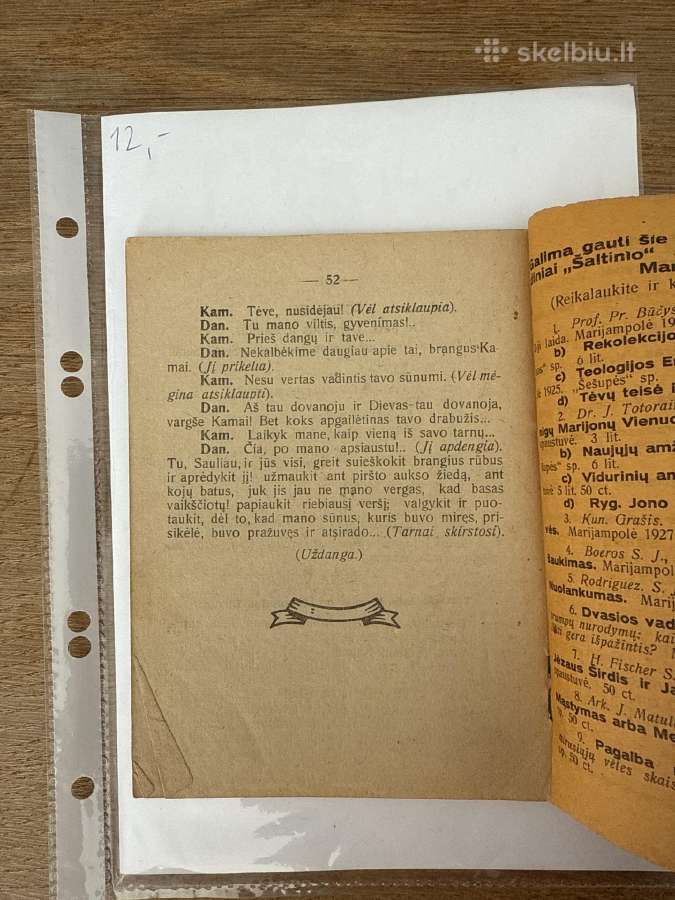 skelbiu.lt
12,-
— 52 —
Kam. Tėve, nusidėjau! (Vėl atsiklaupia).
Dan. Tu mano viltis, gyvenimas!..
Kam. Prieš dangų ir tave...
Dan. Nekalbėkime daugiau apie tai, brangus Ka-
mai. (Jį prikelia).
Kam. Nesu vertas vadintis tavo sūnumi. (Vėl mė-
gina atsiklaupti).
Dan. Aš tau dovanoju ir Dievas tau dovanoja,
vargše Kamai! Bet koks apgailėtinas tavo drabužis...
Kam. Laikyk mane, kaip vieną iš savo tarnų...
Dan. Čia, po mano apsiaustu!.. (Jį apdengia).
Tu, Sauliau, ir jūs visi, greit suieškokit brangius rūbus
ir aprėdykit jį! užmaukit ant piršto aukso žiedą, ant
kojų batus, juk jis jau ne mano vergas, kad basas
vaikščiotų! papiaukit riebiausį veršį; valgykit ir puo-
taukit, dėl to, kad mano sūnus, kuris buvo miręs, pri-
sikėlė, buvo pražuvęs ir atsirado... (Tarnai skirstosi).
(Uždanga.)
Galima gauti šie
„Šaltinio“
Mar
(Reikalaukite ir k
1. Prof. Pr. Būčys
laida. Marijampolė 19
b) Rekolekcijo
sp. 6 lit.
c) Teologijos En
1925. „Šešupės“ sp.
d) Tėvų teisė i
2. Dr. J. Totorai
Marijonų Vienuo
3 lit.
b) Naujųjų amž
sp. 6 lit.
c) Vidurinių am
5 lit. 50 ct.
d) Ryg. Jono
3. Kun. Grašis.
Marijampolė 1927
4. Boeros S. J.,
Marijampol
5. Rodriguez. S. J
Nuolankumas. Marij
6. Dvasios vad
nurodymų: kai
gera išpažintis?
7. H. Fischer S.
Jėzaus Širdis ir Ja
50 ct.
8. Ark. J. Matul
Mąstymas arba Me
50 ct.
9. Pagalba
vėles skais
sp. 50 ct.